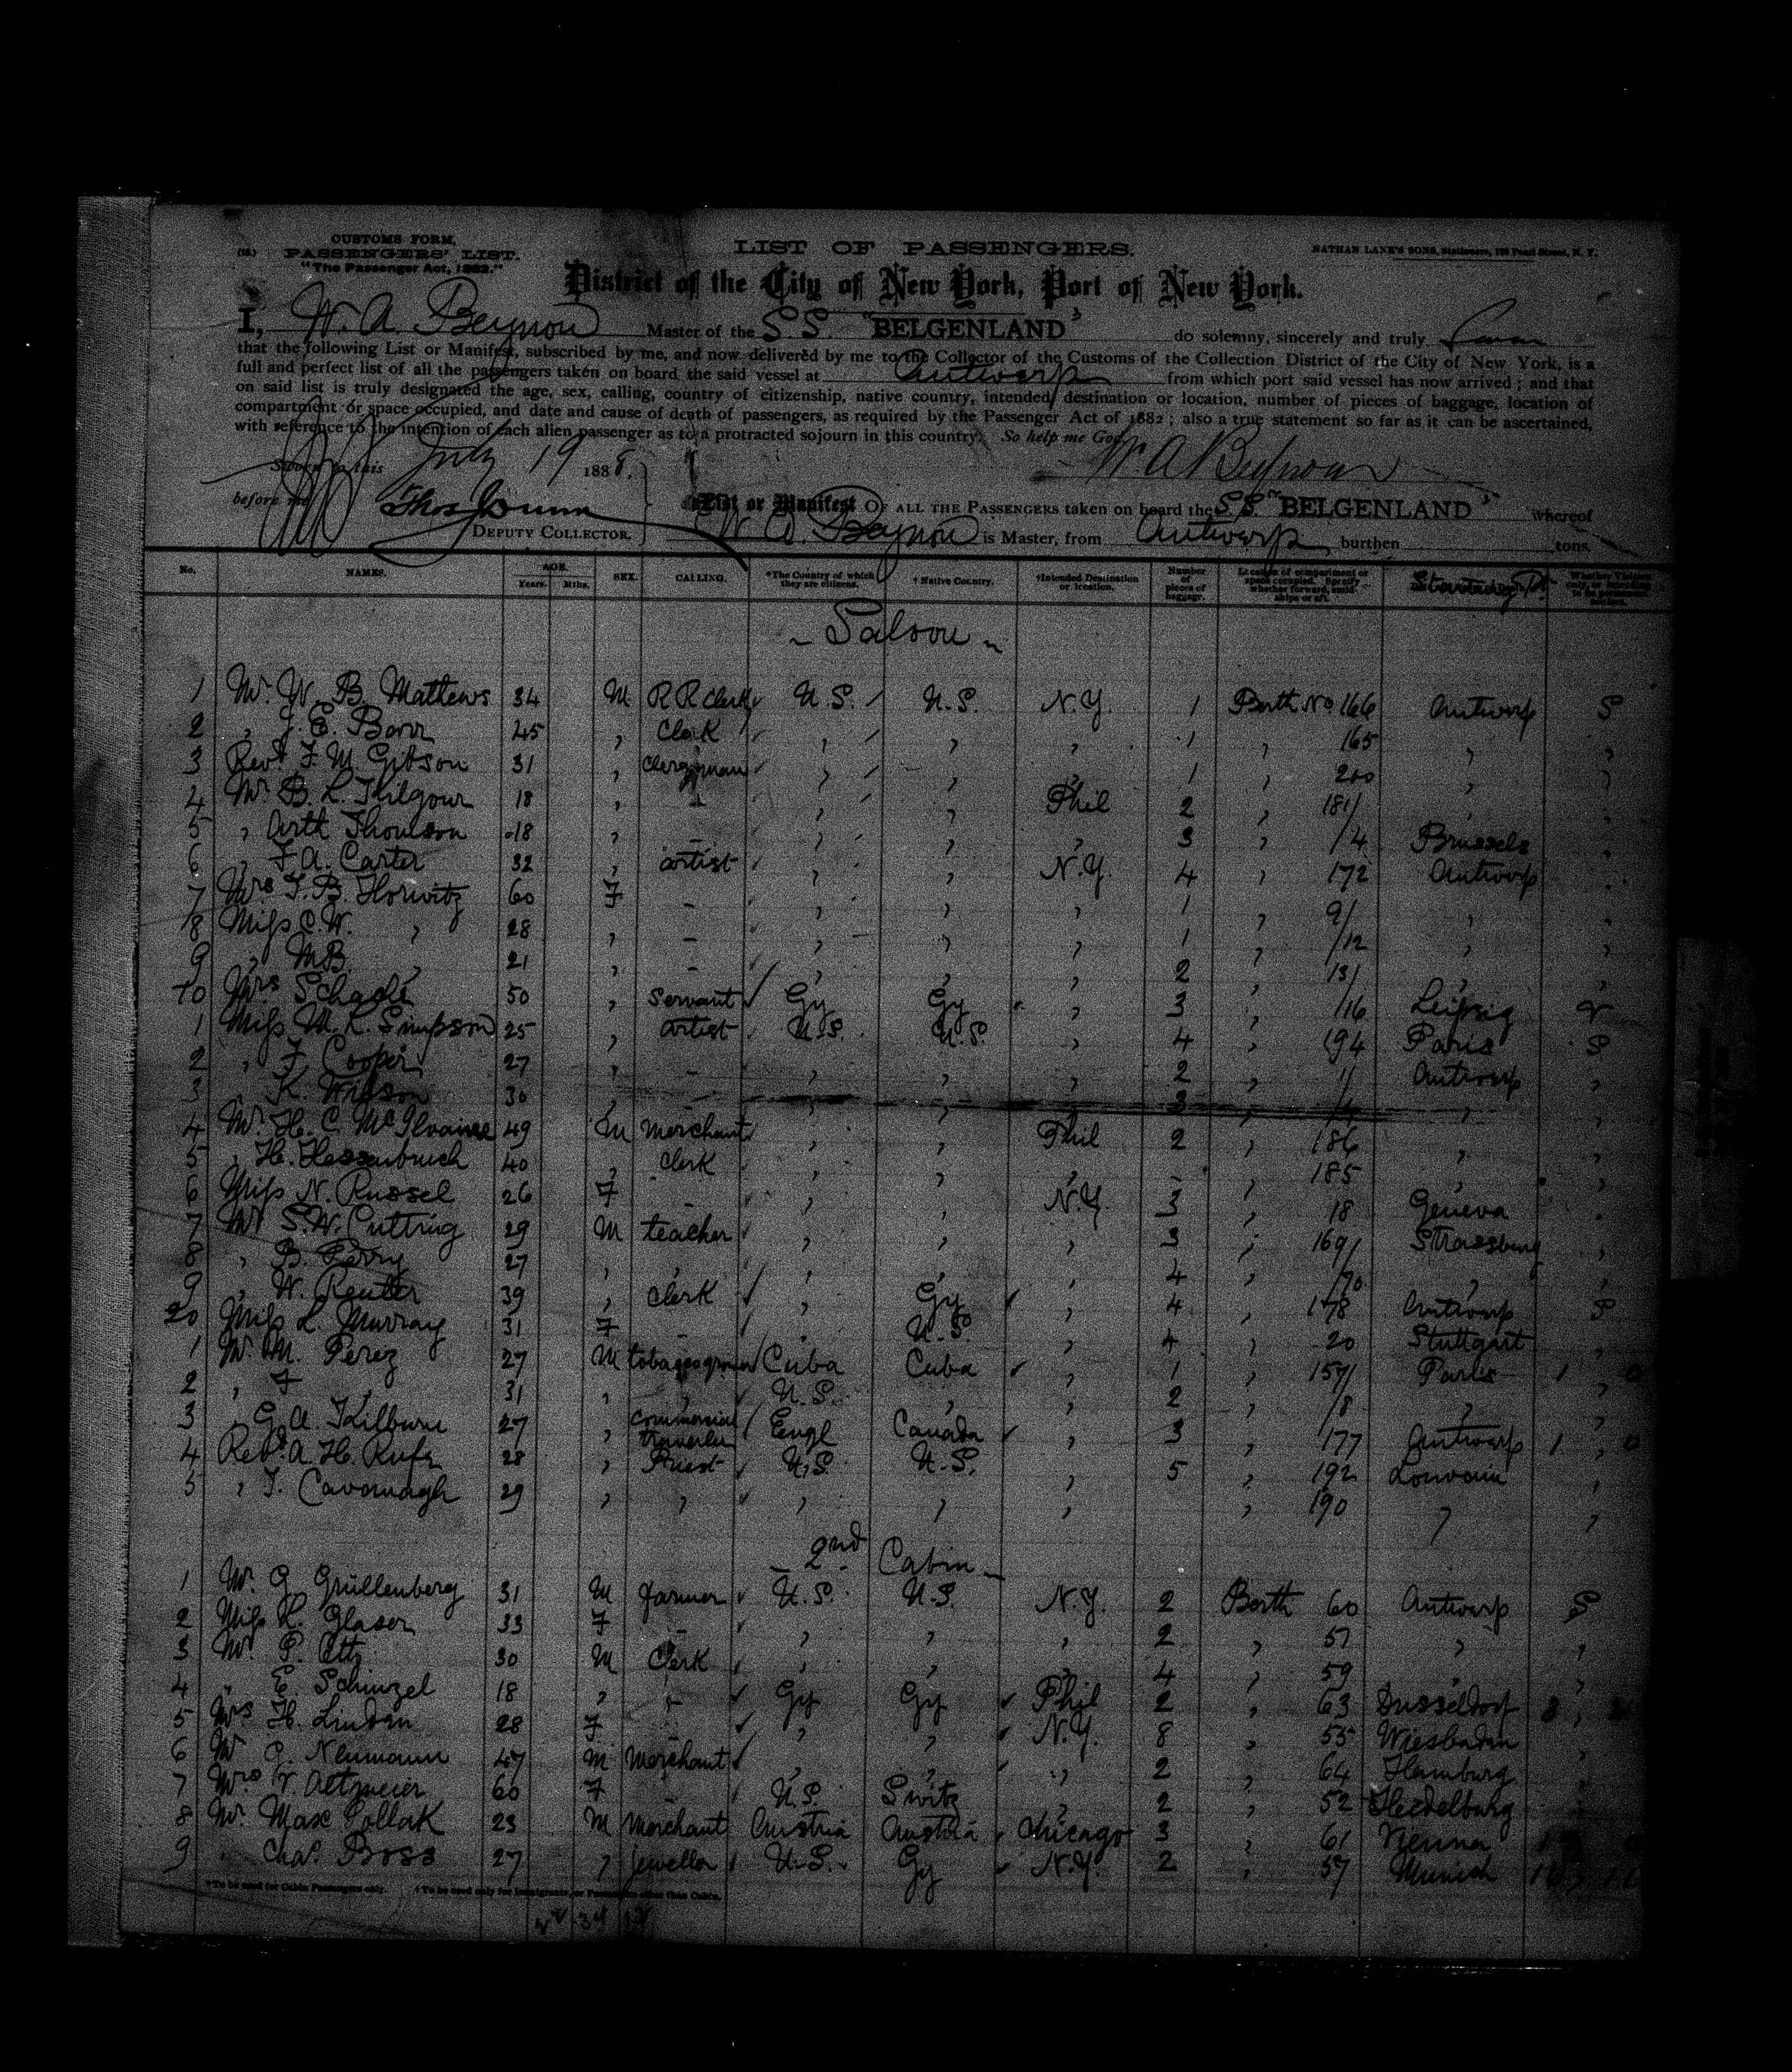 CUSTOMS FORM,
PASSENGERS' LIST.
"The Passenger Act, 1882."
LIST OF PASSENGERS.
NATHAN LANE'S SONS, Stationers, Pearl Street, N. Y.
District of the City of New York, Port of New York.
I, W. A. Beynon Master of the S.S. "BELGENLAND" do solemny, sincerely and truly
that the following List or Manifest, subscribed by me, and now delivered by me to the Collector of the Customs of the Collection District of the City of New York, is a
full and perfect list of all the passengers taken on board the said vessel at Antwerp from which port said vessel has now arrived; and that
on said list is truly designated the age, sex, calling, country of citizenship, native country, intended destination or location, number of pieces of baggage, location of
compartment or space occupied, and date and cause of death of passengers, as required by the Passenger Act of 1882; also a true statement so far as it can be ascertained,
with reference to the intention of each alien passenger as to a protracted sojourn in this country. So help me God
Sworn to this July 19 1888. W. A. Beynon
before me Thos Dunn
DEPUTY COLLECTOR.
List or Manifest OF ALL THE PASSENGERS taken on board the S.S. "BELGENLAND" whereof
W. A. Beynon is Master, from Antwerp burthen tons.
No. NAMES. AGE. Years. Mths. SEX. CALLING. *The Country of which they are citizens. † Native Country. †Intended Destination or location. Number of pieces of baggage. Location of compartment or space occupied. Specify whether forward, amidships or aft. Starting Pt.
- Saloon -
1 Mr. W. B. Mathews 34 M R R clerk U.S. U.S. N.Y. 1 Berth No 166 Antwerp S
2 " J. E. Barr 45 " Clerk " " " 1 " 165 " "
3 Revd. F. M. Gibson 31 " Clergyman " " " 1 " 200 " "
4 Mr. B. L. Kilgour 18 " - " " Phil 2 " 181/ "
5 " Arth Thomson 18 " - " " " 3 " /4 Brussels "
6 " F. A. Carter 32 " artist " " N.Y. 4 " 172 Antwerp "
7 Mrs T. B. Horwitz 60 F - " " " 1 " 9/ " "
8 Miss C. W. " 28 " - " " " 1 " /12 " "
9 " M B. " 21 " - " " " 2 " 13/ "
10 Mrs Schade 50 " Servant Gy Gy " 3 " /16 Leipzig
1 Miss M. L. Simpson 25 " artist U.S. U.S. " 4 " 194 Paris S
2 " F. Cooper 27 " - " " " 2 " 11/ Antwerp "
3 " K. Wilson 30 " " " " 3 " " "
4 Mr. H. C. McIlvaine 49 M Merchant " " Phil 2 " 186 " "
5 " H. Hessenbruch 40 " Clerk " " " - " 185 " "
6 Miss N. Russel 26 F - " " N.Y. 3 " 18 Geneva "
7 Mr. S. W. Cutting 29 M teacher " " " 3 " 169/ Strassburg "
8 " B. Perry 27 " " " " " 4 " /70 " "
9 " W. Reutter 39 " Clerk " Gy " 4 " 178 Antwerp S
20 Miss L. Murray 31 F - " U.S. " 4 " 20 Stuttgart "
1 Mr. M. Perez 27 M tobaccogrower Cuba Cuba " 1 " 157/ Paris "
2 " F. " 31 " " U.S. " " 2 " /8 " "
3 " G. A. Kilburn 27 " commercial traveller Engl Canada " 3 " 177 Antwerp "
4 Revd. A. H. 28 " Priest U.S. U.S. " 5 " 192 Louvain "
5 " T. Cavanagh 29 " " " " " " 190 " "
- 2nd Cabin -
1 Mr. G. Grüllenberg 31 M farmer U.S. U.S. N.Y. 2 Berth 60 Antwerp S
2 Miss K. Glaser 33 F - " " " 2 " 51 " "
3 Mr. P. 30 M Clerk " " " 4 " 59 " "
4 " E. Schinzel 18 " - Gy Gy Phil 2 " 63 Dusseldorf "
5 Mrs H. Linden 28 F " " N.Y. 8 " 55 Wiesbaden "
6 Mr. G. Neumann 47 M Merchant " " " 2 " 64 Hamburg "
7 Mrs V. Altmeier 60 F U.S. Switz " 2 " 52 Heidelburg "
8 Mr. Max Pollak 23 M Merchant Austria Austria Chicago 3 " 61 Vienna
9 " Chas. Boss 27 " Jeweller U.S. Gy N.Y. 2 " 57 Munich
*To be used for Cabin Passengers only. †To be used only for Immigrants, or Passengers other than Cabin.